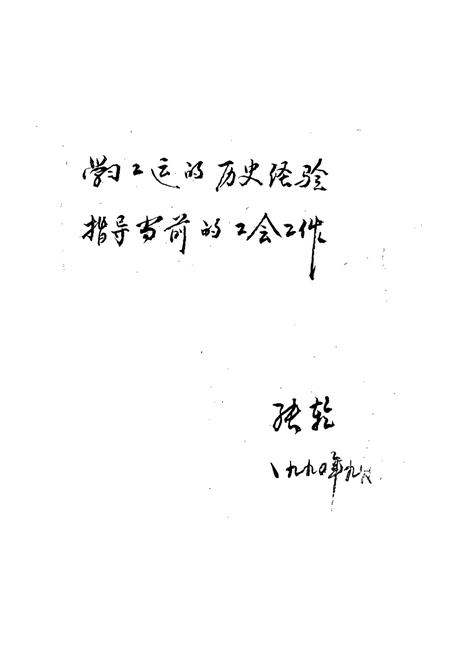 学习工运的历史经验
指导当前的工会工作
张乾
一九九〇年九月